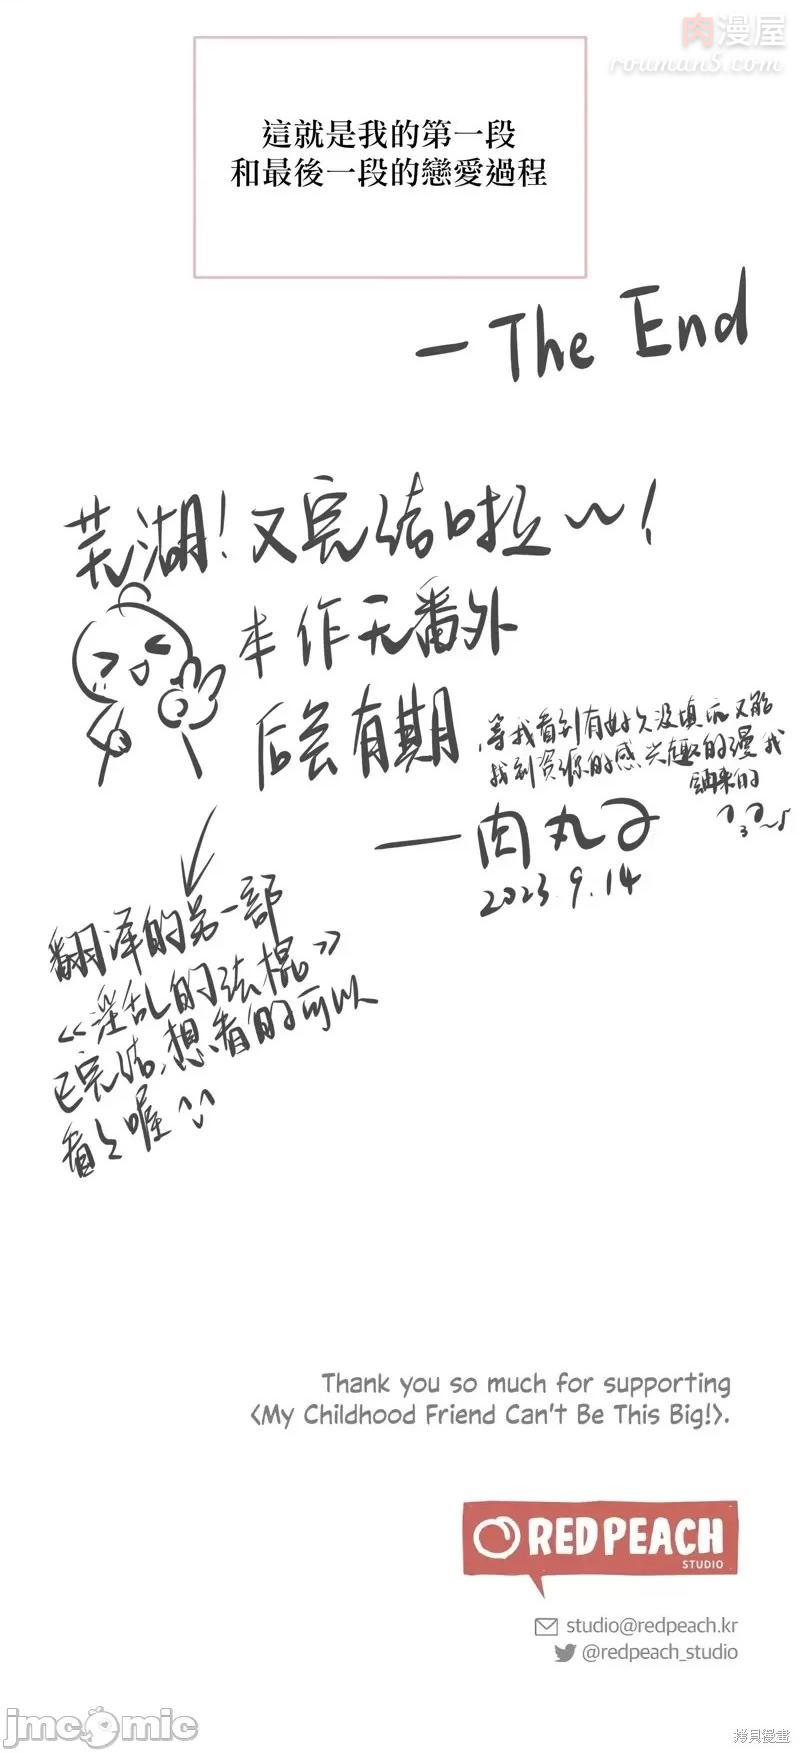 肉漫屋
rouman5.com
這就是我的第一段
和最後一段的戀愛過程
—The End
芜湖！又完结啦～！
本作无番外
后会有期
等我看到有好久没填坑又能
找到资源的感兴趣的漫我
会再来的
—肉丸子
2023.9.14
翻译的另一部
《淫乱的法棍》
已完结，想看的可以
看看喔
Thank you so much for supporting
<My Childhood Friend Can't Be This Big!>.
RED PEACH
STUDIO
studio@redpeach.kr
@redpeach_studio
jmcomic
拷貝漫畫